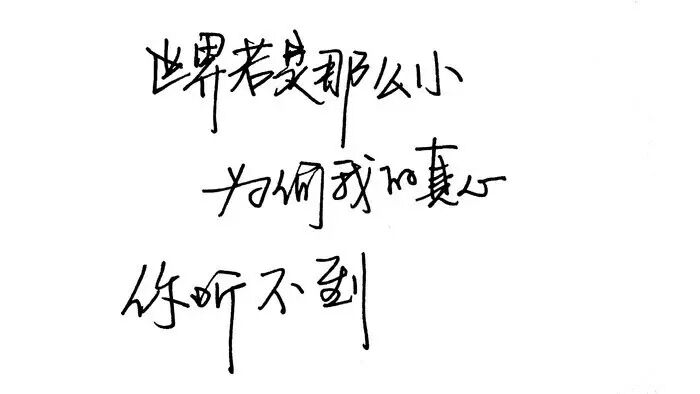 世界若是那么小
为何我的真心
你听不到